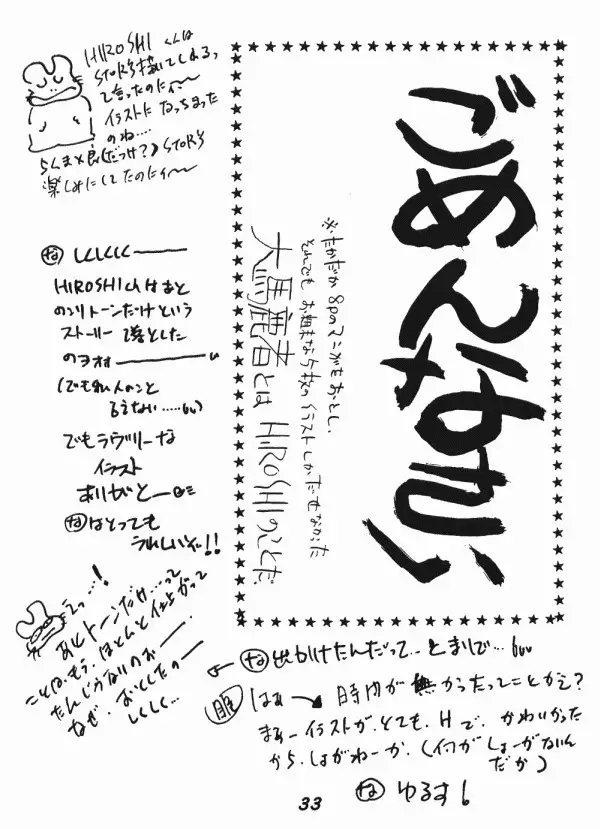 ごめんなさい
※たかだか8pのマンガもおとし、
それでもお粗末な5枚のイラストしかだせなかった
大馬鹿者とは HIROSHIのことだ
HIROSHIくんは
STORY描いてくれるって
言ったのにィ〜
イラストになっちまった
のね‥‥
STORY
楽しみにしてたのにィ〜
な しくしくしく
HIROSHIくんはあと
のこりトーンだけという
ストーリーを落とした
のヨォ
(でも私人のこと
言えない……)
でもラヴリーな
イラスト
ありがとー
なはとっても
うれしいぞ!!
えっ…!
あとトーンだけ…って
ことは、もう、ほとんど仕上がって
たんじゃないのぉー
なぜ、おとしたのー
しくしく…
な 出かけたんだって‥とまりで‥
はぁ→ 時間が無かったってことかえ?
まぁーイラストが、とても、Hで、かわいかった
から、しょがねーか、(イヤ がしょーがないん
だか)
な ゆるす
33